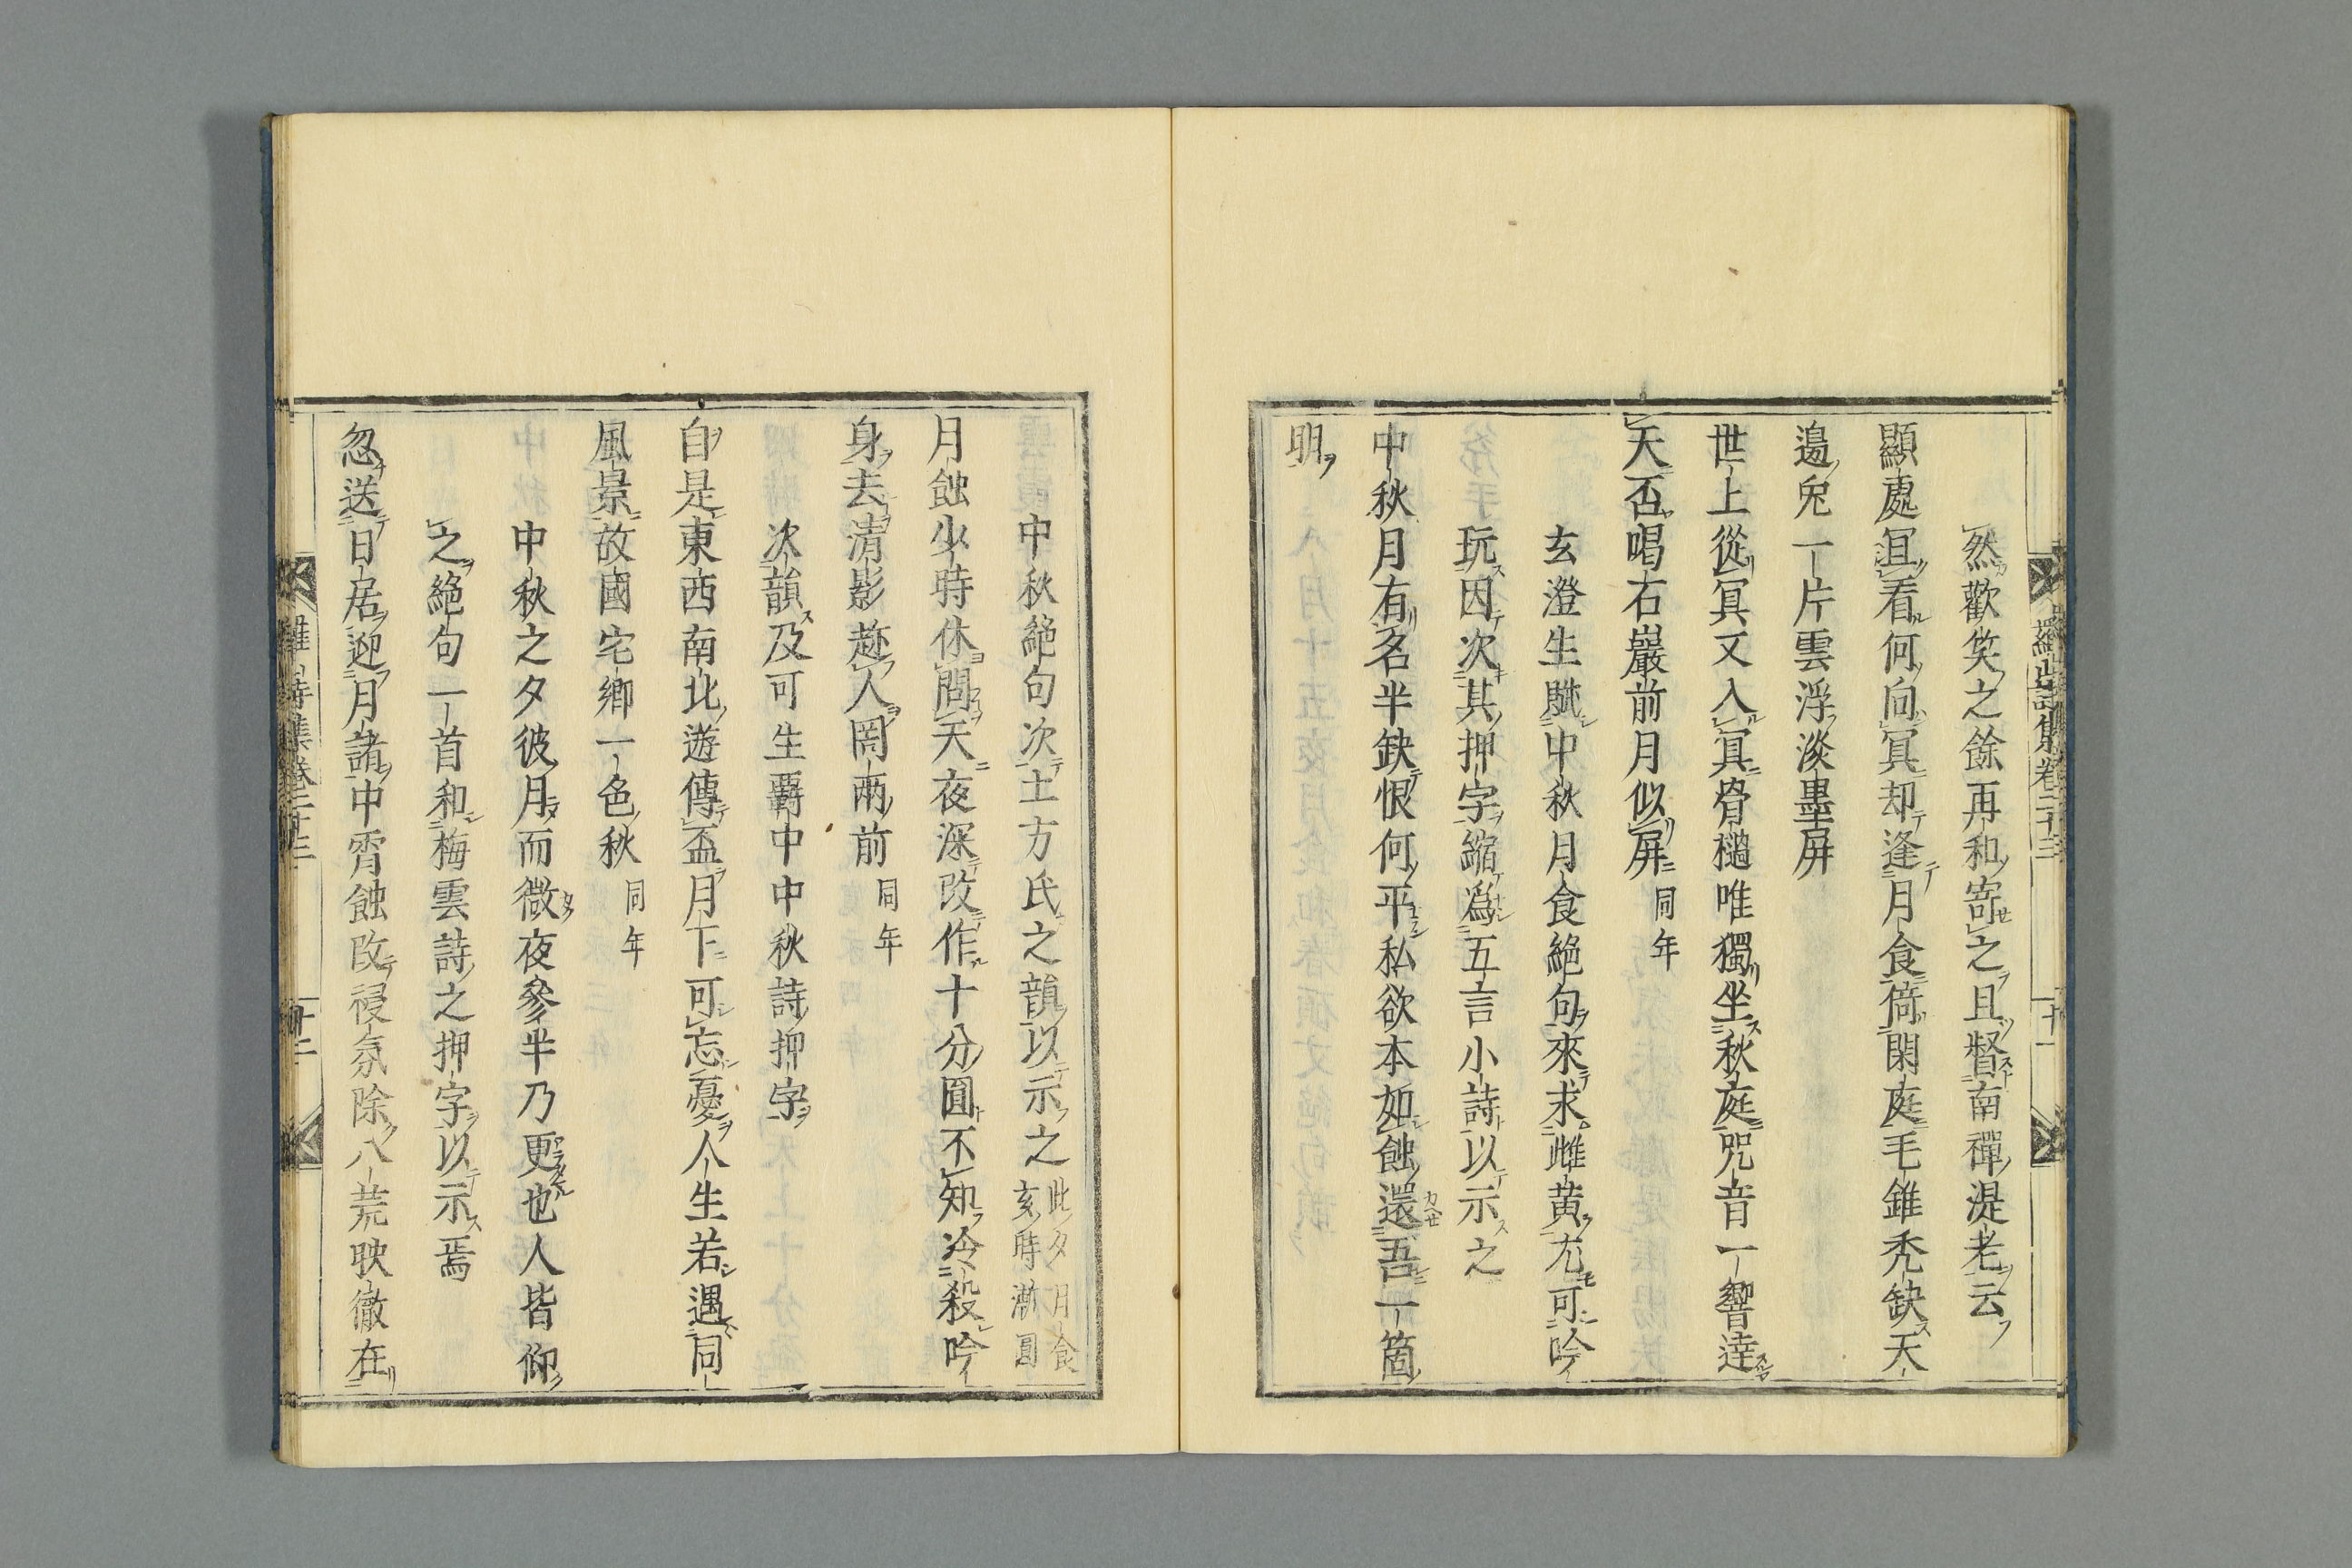 然歡笑之餘再和寄之且督南禪湜老云
顯處冝看何向冥却逢月食倚閑庭毛錐禿缺天
邉兒一片雲浮淡墨屏
世上從冥又入冥脅槌唯獨坐秋庭咒音一響逹
天否喝石巖前月似屏 同年
玄澄生賦中秋月食絕句來求雌黃尤可吟
玩因次其押字縮爲五言小詩以示之
中秋月有名半缺恨何平私欲本如蝕還吾一箇
明
中秋絕句次土方氏之韻以示之 此夕月食
亥時漸圓
月蝕少時休問天夜深改作十分圓不知冷殺吟
身去清影趂人罔兩前 同年
次韻及可生覇中中秋詩押字
自是東西南北遊傳盃月下可忘憂人生若遇同
風景故國宅鄉一色秋 同年
中秋之夕彼月而微夜參半乃更也人皆仰
之絕句一首和梅雲詩之押字以示焉
忽送日居迎月諸中霄蝕改祲氛除八荒映徹在
羅山詩集卷二十三
十一
羅山詩集卷二十三
十二